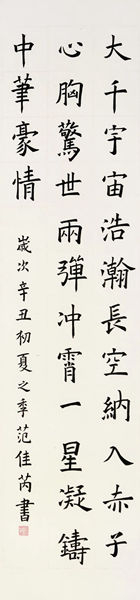 大千宇宙浩瀚長空納入赤子
心胸驚世兩彈冲霄一星凝鑄
中華豪情
歲次辛丑初夏之季范佳芮書